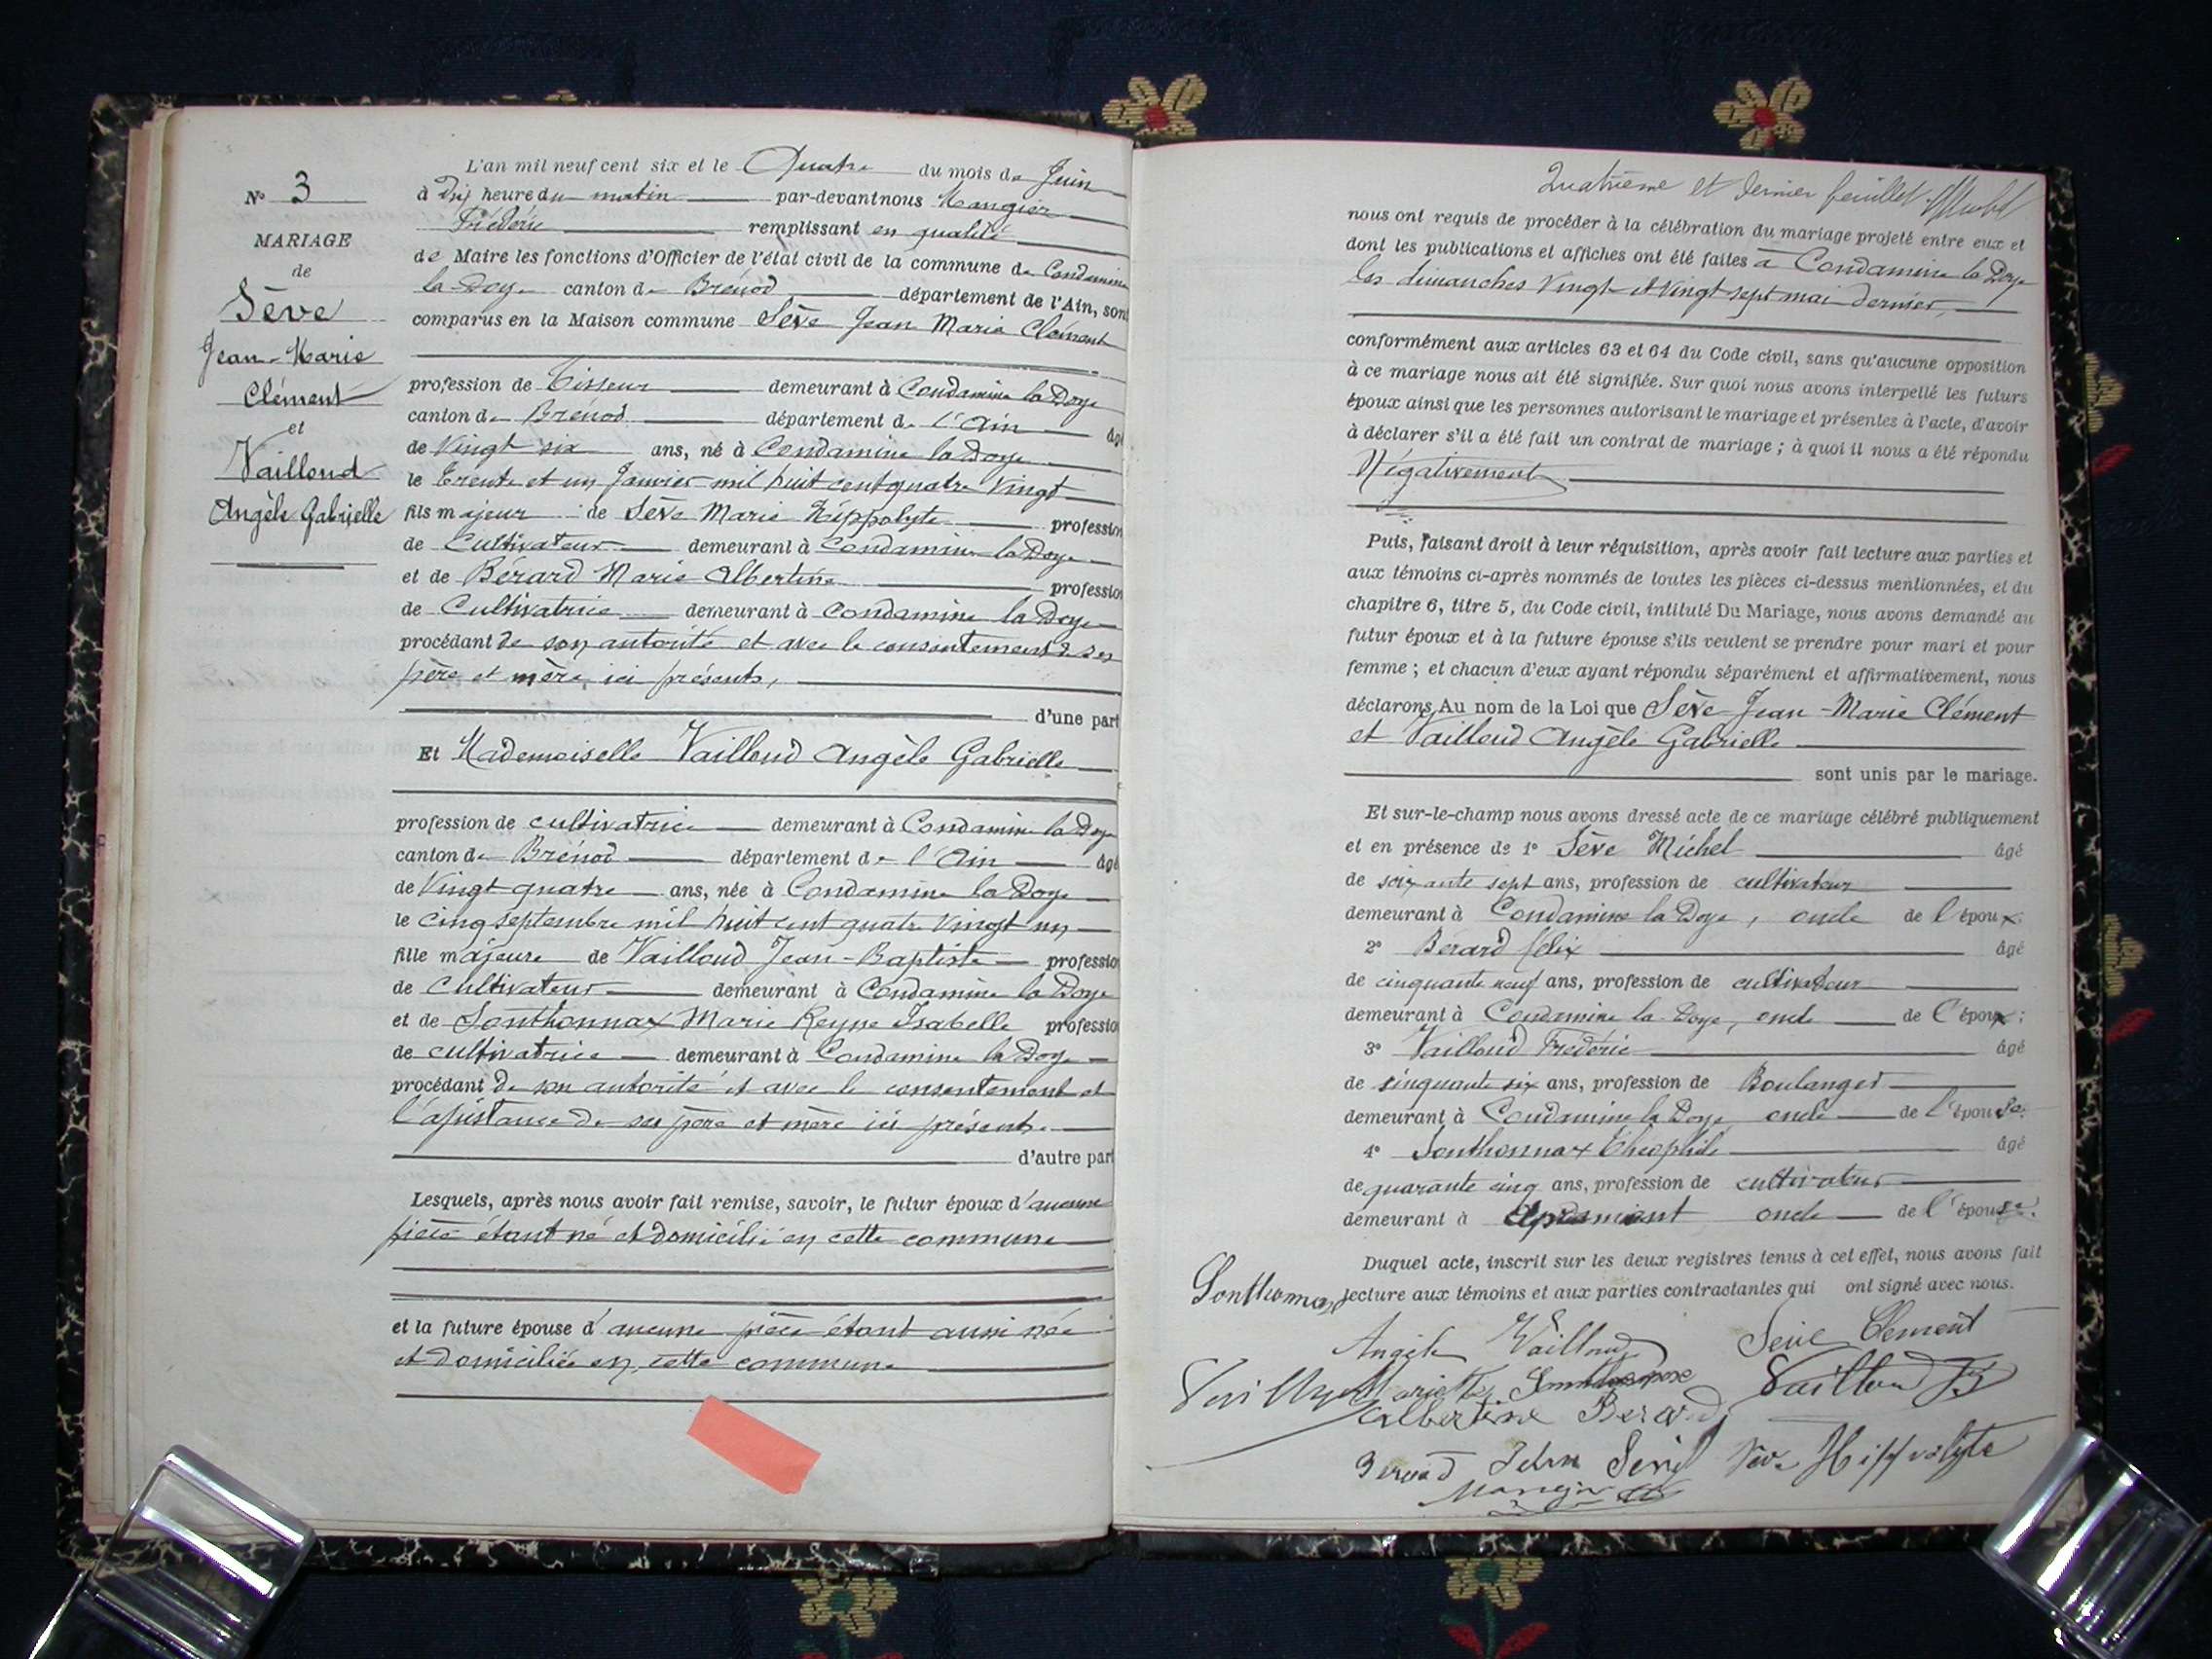 N° 3
MARIAGE
de
Sève
Jean-Marie
Clément
et
Vailloud
Angèle Gabrielle
L'an mil neuf cent six et le Quatre du mois de Juin
à Dix heure du matin par-devant nous Mangier
Frédéric remplissant en qualité
de Maire les fonctions d'Officier de l'état civil de la commune de Condamine
la Doye canton de Brénod département de l'Ain, sont
comparus en la Maison commune Sève Jean Marie Clément
profession de Tisseur demeurant à Condamine la Doye
canton de Brénod département de l'Ain âgé
de Vingt six ans, né à Condamine la Doye
le Trente et un Janvier mil huit cent quatre Vingt
fils majeur de Sève Marie Hippolyte profession
de Cultivateur demeurant à Condamine la Doye
et de Bérard Marie Albertine profession
de Cultivatrice demeurant à Condamine la Doye
procédant de son autorité et avec le consentement de ses
père et mère, ici présents,
d'une part
Et Mademoiselle Vailloud Angèle Gabrielle
profession de cultivatrice demeurant à Condamine la Doye
canton de Brénod département de l'Ain âgé
de Vingt quatre ans, née à Condamine la Doye
le cinq septembre mil huit cent quatre Vingt un
fille majeure de Vailloud Jean-Baptiste profession
de Cultivateur demeurant à Condamine la Doye
et de Sonthonnax Marie Reyne Isabelle profession
de cultivatrice demeurant à Condamine la Doye
procédant de son autorité et avec le consentement et
l'assistance de ses père et mère ici présents.
d'autre part
Lesquels, après nous avoir fait remise, savoir, le futur époux d'aucune
pièce étant né et domicilié en cette commune
et la future épouse d'aucune pièce étant aussi née
et domiciliée en cette commune
Quatrième et dernier feuillet
nous ont requis de procéder à la célébration du mariage projeté entre eux et
dont les publications et affiches ont été faites à Condamine la Doye
les dimanches Vingt et Vingt sept mai dernier,
conformément aux articles 63 et 64 du Code civil, sans qu'aucune opposition
à ce mariage nous ait été signifiée. Sur quoi nous avons interpellé les futurs
époux ainsi que les personnes autorisant le mariage et présentes à l'acte, d'avoir
à déclarer s'il a été fait un contrat de mariage ; à quoi il nous a été répondu
Négativement
Puis, faisant droit à leur réquisition, après avoir fait lecture aux parties et
aux témoins ci-après nommés de toutes les pièces ci-dessus mentionnées, et du
chapitre 6, titre 5, du Code civil, intitulé Du Mariage, nous avons demandé au
futur époux et à la future épouse s'ils veulent se prendre pour mari et pour
femme ; et chacun d'eux ayant répondu séparément et affirmativement, nous
déclarons Au nom de la Loi que Sève Jean-Marie Clément
et Vailloud Angèle Gabrielle
sont unis par le mariage.
Et sur-le-champ nous avons dressé acte de ce mariage célébré publiquement
et en présence de 1° Sève Michel âgé
de soixante sept ans, profession de cultivateur
demeurant à Condamine la Doye, oncle de l'époux
2° Bérard Félix âgé
de cinquante neuf ans, profession de cultivateur
demeurant à Condamine la Doye, oncle de l'époux ;
3° Vailloud Frédéric âgé
de cinquante six ans, profession de Boulanger
demeurant à Condamine la Doye oncle de l'épouse.
4° Sonthonnax Théophile âgé
de quarante cinq ans, profession de cultivateur
demeurant à Apremont oncle de l'épouse.
Duquel acte, inscrit sur les deux registres tenus à cet effet, nous avons fait
Sonthonnax lecture aux témoins et aux parties contractantes qui ont signé avec nous.
Angèle Vailloud Sève Clément
Vailloud JB
Albertine Berard
Berard Sève Hippolyte